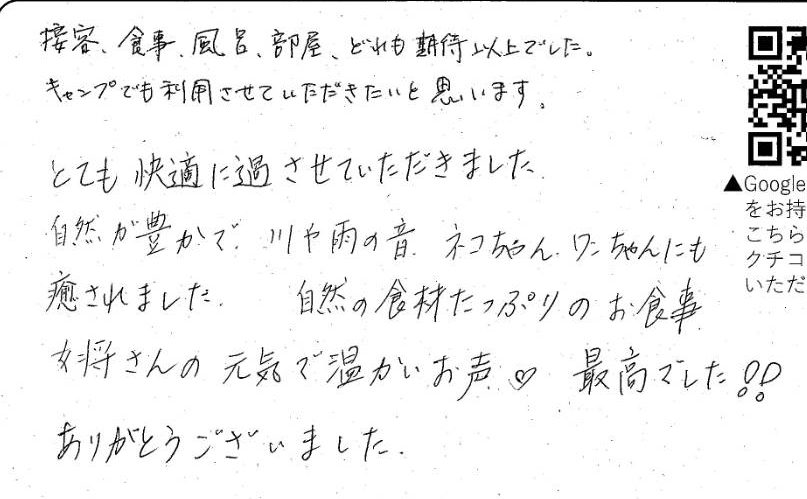 接客、食事、風呂、部屋、どれも期待以上でした。
キャンプでも利用させていただきたいと思います。
とても快適に過させていただきました
自然が豊かで 川や雨の音 ネコちゃん、ワンちゃんにも
癒されました。 自然の食材たっぷりのお食事
女将さんの元気で温かいお声♡ 最高でした!!
ありがとうございました。
▲Google
をお持
こちら
クチコ
いただ